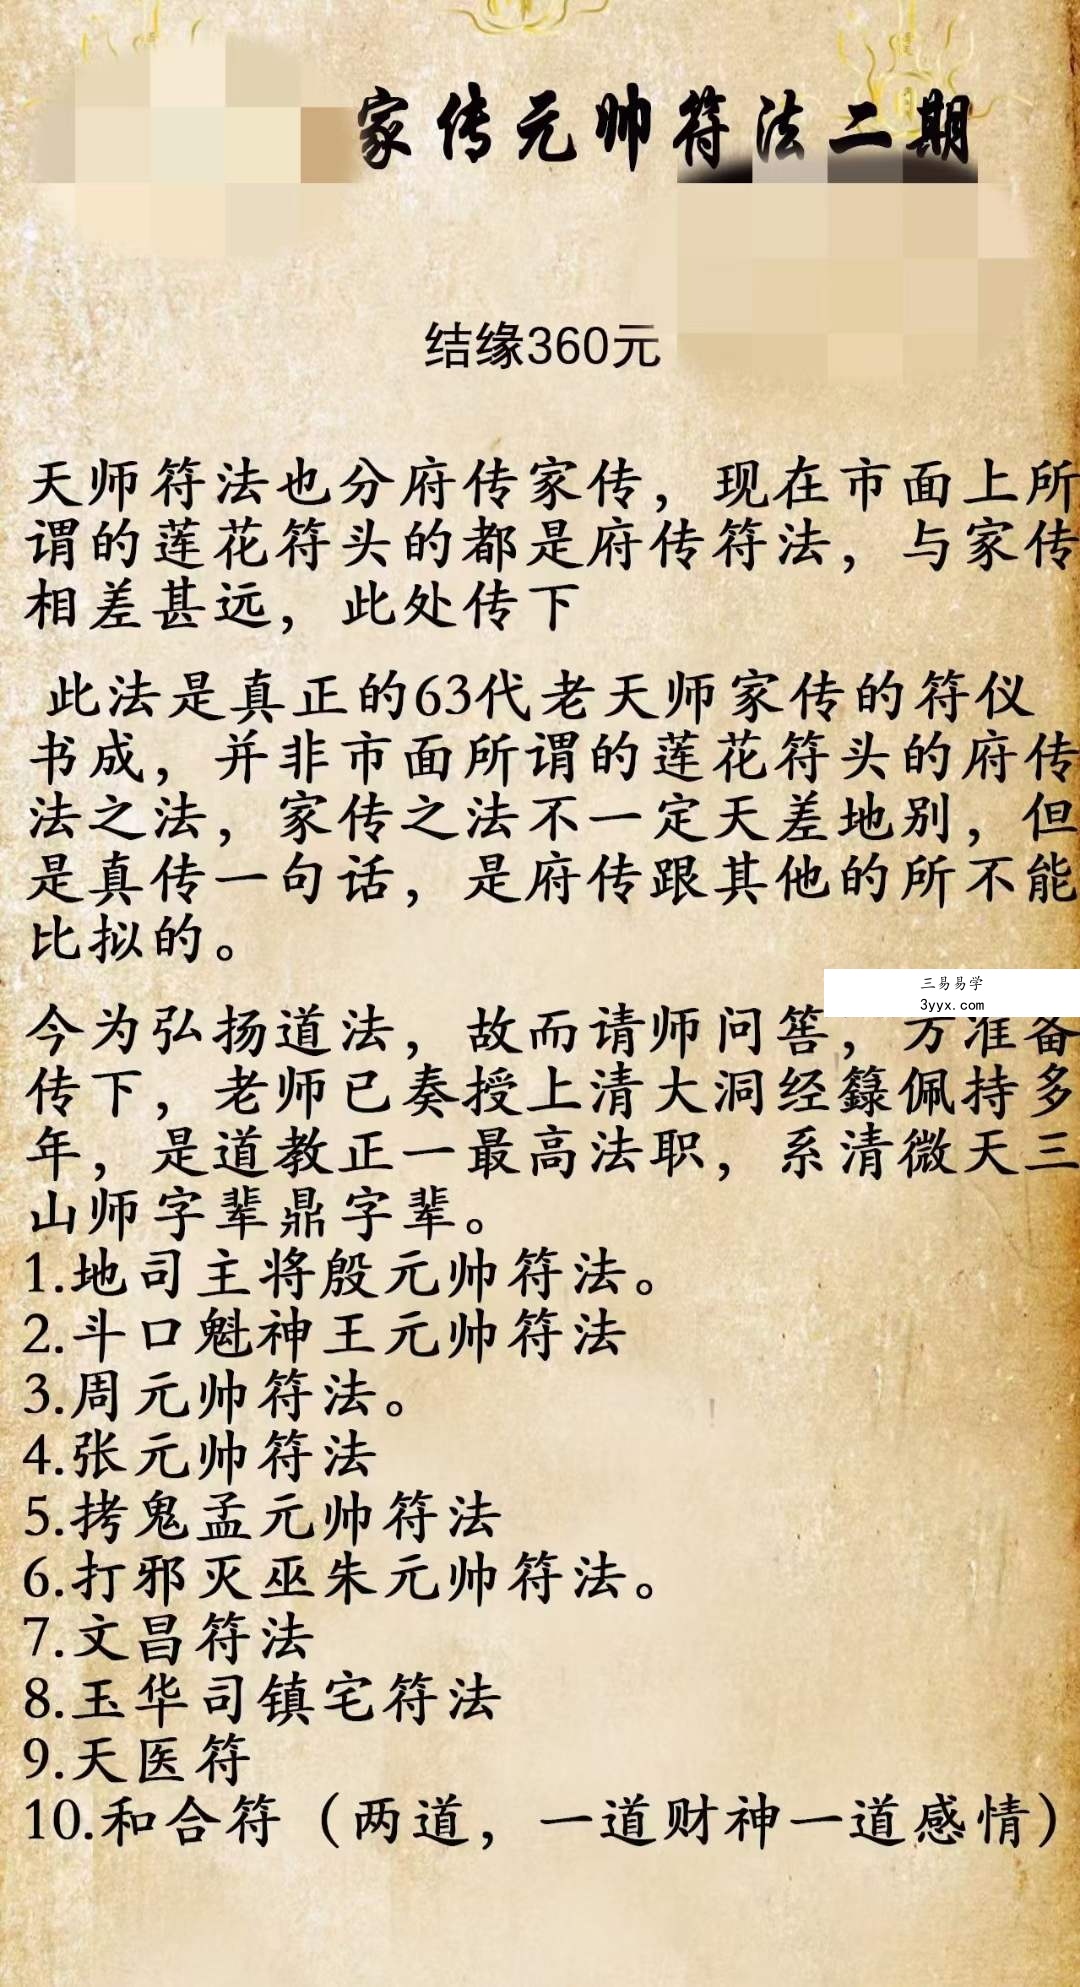 家传元帅符法二期
结缘360元
天师符法也分府传家传，现在市面上所
谓的莲花符头的都是府传符法，与家传
相差甚远，此处传下
此法是真正的63代老天师家传的符仪
书成，并非市面所谓的莲花符头的府传
法之法，家传之法不一定天差地别，但
是真传一句话，是府传跟其他的所不能
比拟的。
三易易学
3yyx.com
今为弘扬道法，故而请师问筶，方准备
传下，老师已奏授上清大洞经籙佩持多
年，是道教正一最高法职，系清微天三
山师字辈鼎字辈。
1.地司主将殷元帅符法。
2.斗口魁神王元帅符法
3.周元帅符法。
4.张元帅符法
5.拷鬼孟元帅符法
6.打邪灭巫朱元帅符法。
7.文昌符法
8.玉华司镇宅符法
9.天医符
10.和合符（两道，一道财神一道感情）